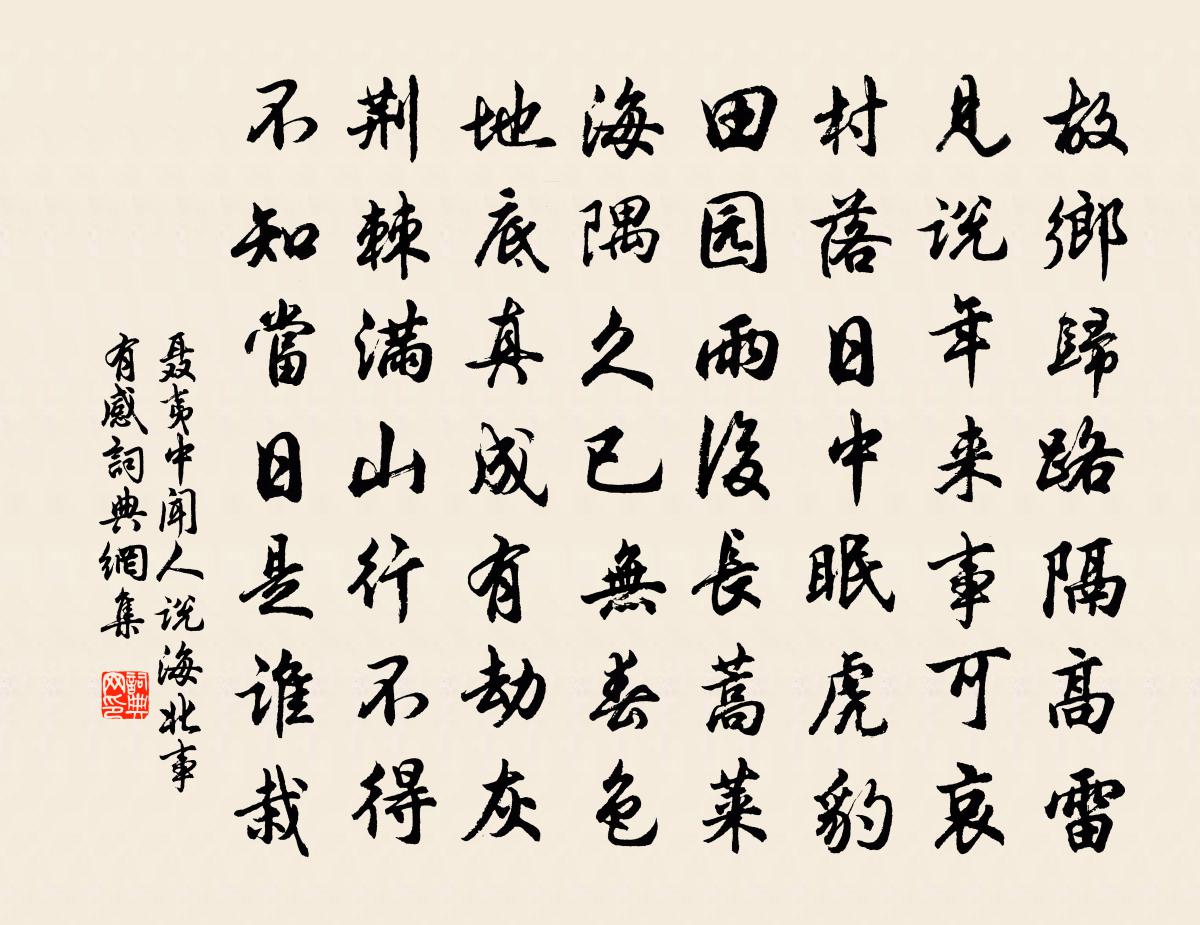 故鄉歸路隔高雷
見说年来事可哀
村落日中眠虎豹
田园雨後長蒿萊
海隅久已無春色
地底真成有劫灰
荆棘满山行不得
不知當日是谁栽
聂夷中闻人说海北事
有感詞典網集
詞典
网印